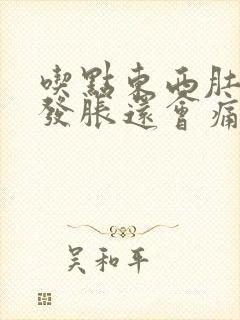 喫點東西肚
發脹還會痛
吴和平